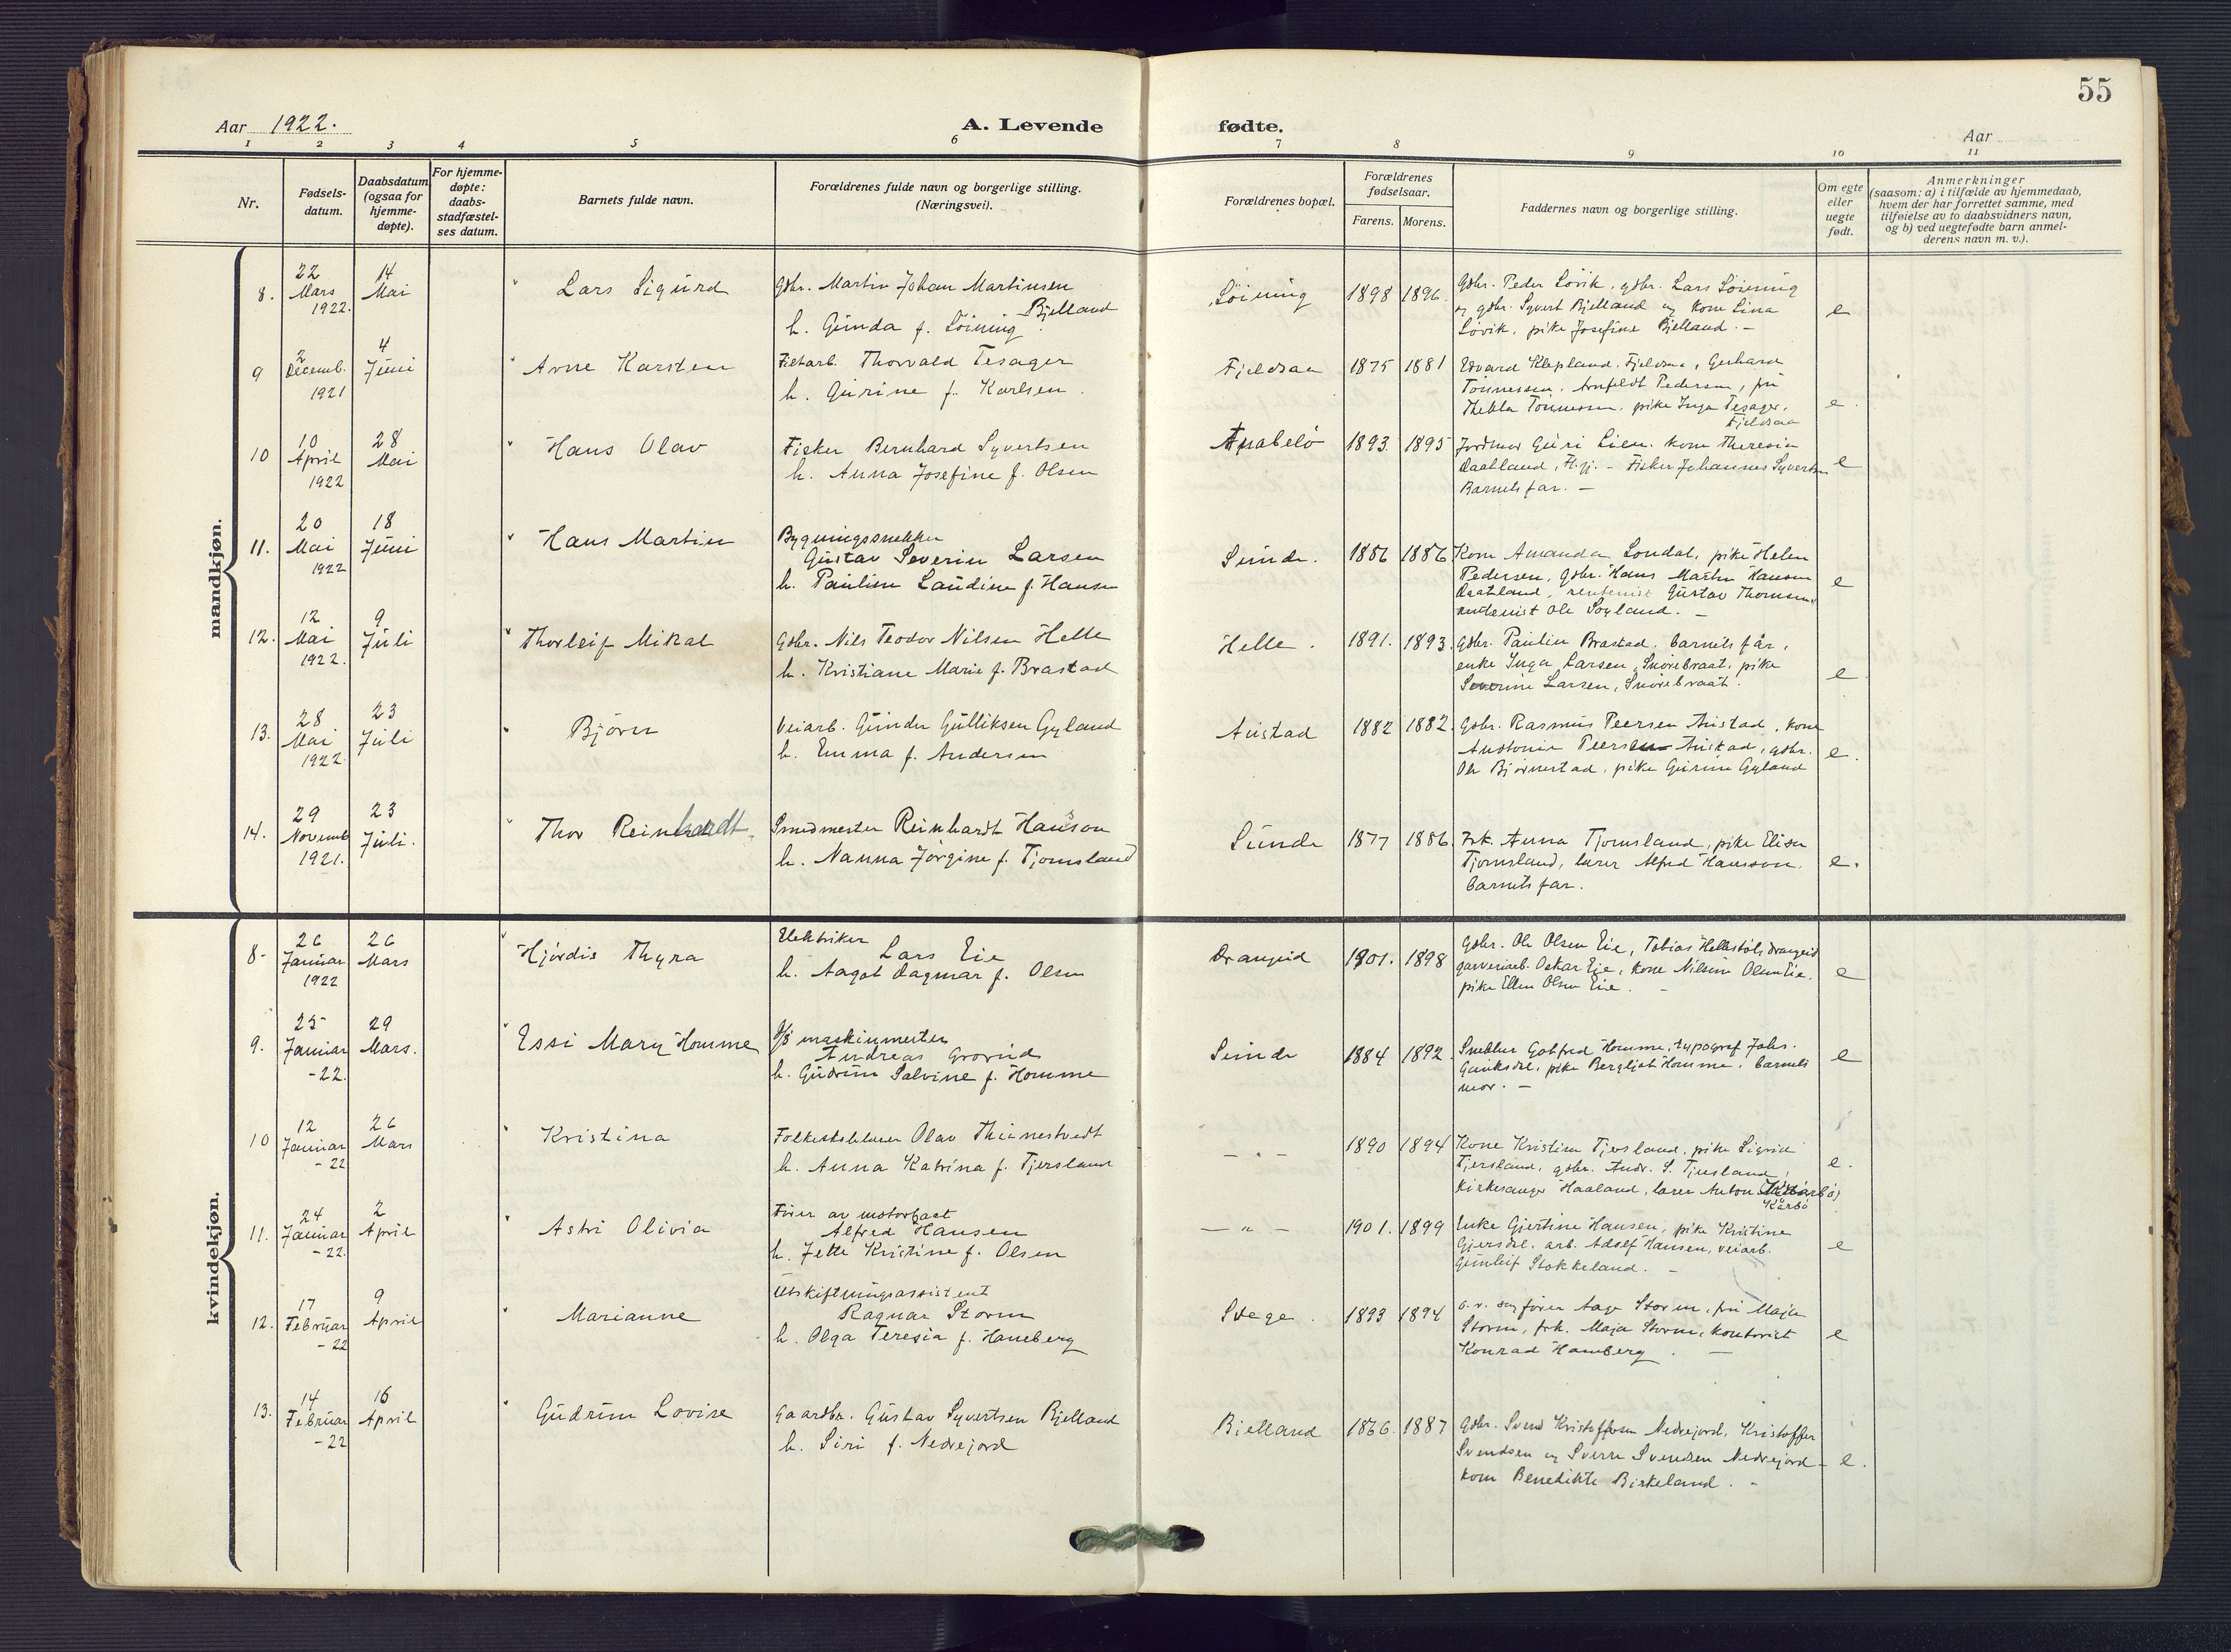 55
Aar 1922.
A. Levende fødte.
Aar
1 2 3 4 5 6 7 8 9 10 11
Nr.
Fødsels-
datum.
Daabsdatum
(ogsaa for
hjemme-
døpte).
For hjemme-
døpte:
daabs-
stadfæstel-
ses datum.
Barnets fulde navn.
Forældrenes fulde navn og borgerlige stilling.
(Næringsvei).
Forældrenes bopæl.
Forældrenes
fødselsaar.
Farens. Morens.
Faddernes navn og borgerlige stilling.
Om egte
eller
uegte
født.
Anmerkninger
(saasom: a) i tilfælde av hjemmedaab,
hvem der har forrettet samme, med
tilføielse av to daabsvidners navn,
og b) ved uegtefødte barn anmel-
derens navn m. v.).
mandkjøn.
8.
22
Mars
1922.
14
Mai
Lars Sigurd
Gbr. Martin Johan Martinsen
Bjelland
h. Gunda f. Löining
Löining
1898 1896.
Gbr. Peder Lövik, gbr. Lars Löining
og gbr. Syvert Bjelland og kone Lina
Lövik, pike Josefine Bjelland. -
e
9
2
Decemb.
1921
4
Juni
Arne Karsten
Thorvald Tesager
h. Gurine f. Karlsen.
Fjeldsaa
1875 1881
Edvard Klepland, Fjeldsaa, Gerhard
Tönnessen, Arnfeldt Pedersen, fru
Thekla Tönnessen, pike Inga Tesager,
Fjeldsaa
e.
10
10
April
1922
28
Mai
Hans Olav
Fisker Bernhard Syvertsen
h. Anna Josefine f. Olsen
Anabelö
1893. 1895
Jordmor Guri Lien, kone Theresia
Daatland, H.gj. - Fisker Johannes Syvertsen
Barnets far. -
e
11.
20
Mai
1922
18
Juni
Hans Martin
Bygningssnekker
Gustav Severin Larsen
h. Pauline Laudine f. Hansen
Sunde.
1886 1886.
Kone Amanda Londal, pike Helen
Pedersen, gbr. Hans Martin Hansen
Daatland, rentenist Gustav Thomsen,
rentenist Ole Soyland. -
e
12.
12
Mai
1922.
9
Juli
Thorleif Mikal
Gbr. Nils Teodor Nilsen Helle
h. Kristiane Marie f. Brastad
Helle.
1891. 1893.
Gbr. Paulin Brastad, barnets får,
enke Inga Larsen, Snörebraat, pike
Severine Larsen, Snörebraat.
e
13.
28
Mai
1922.
23
Juli
Björn
Veiarb. Gunder Gulliksen Gyland
h. Emma f. Andersen
Austad
1882 1882.
Gbr. Rasmus Peersen Austad, kone
Andonie Peersen Austad, gbr.
Ole Björnestad, pike Gurine Gyland
e.
14.
29
Novemb
1921.
23
Juli.
Thor Reinhardt.
Smedmester Reinhardt Hansson
h. Nanna Jörgine f. Tjomsland
Sunde
1877 1886.
Frk. Anna Tjomsland, pike Elisa
Tjomsland, lærer Alfred Hansson,
barnets far.
e.
kvindekjøn.
8-
26
Januar
1922
26
Mars
Hjördis Thyra
Elektriker
Lars Eie
h. Aagot Dagmar f. Olsen
Drangeid
1901. 1898
Gbr. Ole Olsen Eie, Tobias Hellestöl, Drangeid
garveriarb. Oskar Eie, kone Nilsine Olsen Eie,
pike Ellen Olsen Eie. -
e
9.
25
Januar
-22.
29
Mars.
Essi Mary Homme
D/S maskinmester
Andreas
h. Gudrun Salvine f. Homme
Sunde
1884 1892.
Snekker Gotfred Homme, typograf Johs.
pike Bergljot Homme, barnets
mor. -
e
10
12
Januar
-22
26
Mars
Kristina
Olav Thinnestvedt
h. Anna Katrina f. Tjersland
- " -
1890 1894
Kone Kristine Tjersland, pike Sigrid
Tjersland, gbr. Andr. S. Tjersland,
kirkesanger Haaland, lærer Anton
Kårbö
e.
11.
24
Januar
-22.
2
April
Astri Olivia
Förer av motorbaat
Alfred Hansen
h. Jette Kristine f. Olsen
- " -
1901. 1899
Enke Gjertine Hansen, pike Kristine
Gjersdal, arb. Adolf Hansen, veiarb.
Gunleif Stokkeland. -
e
12.
17
Februar
-22
9
April
Marianne
Utskiftningsassistent
Ragnar Storm
h. Olga Teresia f. Haneberg
Stege.
1893 1894
o.r. sagförer Aage Storm, fru Maja
Storm, frk. Maja Storm, kontorist
Konrad Hamberg. -
e
13.
14
Februar
-22
16
April
Gudrun Lovise
Gaardbr. Gustav Syvertsen Bjelland
h. Siri f. Nedrejord
Bjelland
1866. 1887
Gbr. Svend Kristoffersen Nedrejord, Kristoffer
Svendsen og Sverre Svendsen Nedrejord -
kone Benedikte Birkeland. -
e.